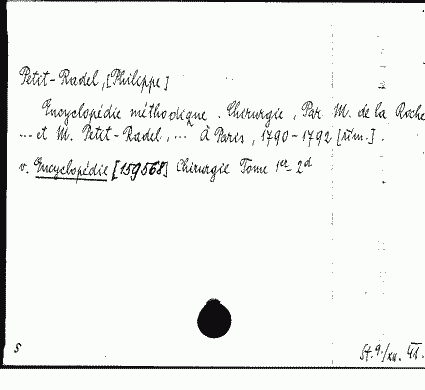 Petit-Radel, [Philippe]
Encyclopédie méthodique. Chirurgie, Par M. de la Roche
... et M. Petit-Radel, ... À Paris, 1790-1792 [rüm.].
v. Encyclopédie [159568] Chirurgie Tome 1er-2d
S
St. 9./XII. 41.